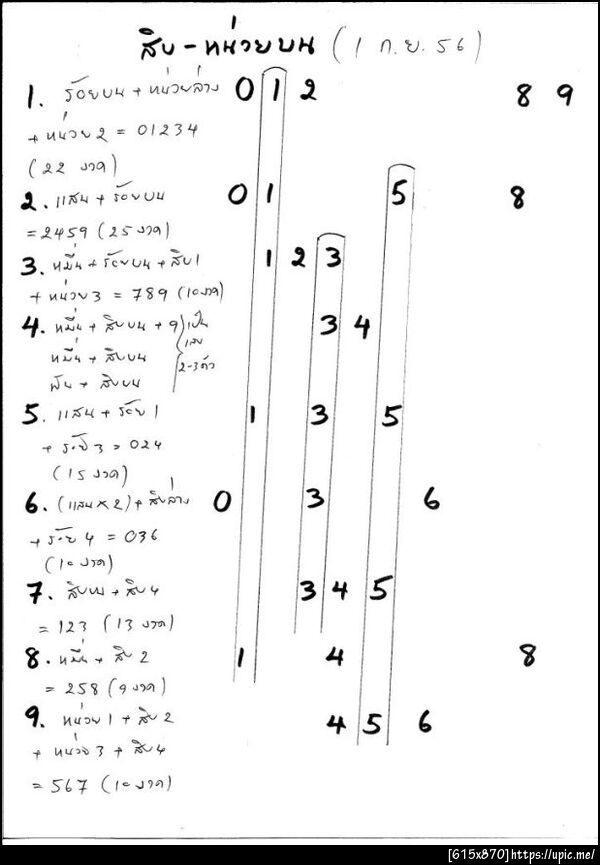 สิบ - หน่วยบน (1 ก.ย. 56)
1. ร้อยบน + หน่วยล่าง 0 1 2 8 9
+ หน่วย 2 = 01234
(22 งวด)
2. แสน + ร้อยบน 0 1 5 8
= 2459 (25 งวด)
3. หมื่น + ร้อยบน + สิบ 1 1 2 3
+ หน่วย 3 = 789 (10 งวด)
4. หมื่น + สิบบน + 9 เป็น 3 4
หมื่น + สิบบน เลข
พัน + สิบบน 2-3 ตัว
5. แสน + ร้อย 1 1 3 5
+ 3 = 024
(15 งวด)
6. (แสน x 2) + สิบล่าง 0 3 6
+ ร้อย 4 = 036
(10 งวด)
7. สิบบน + สิบ 4 3 4 5
= 123 (13 งวด)
8. หมื่น + สิบ 2 1 4 8
= 258 (9 งวด)
9. หน่วย 1 + สิบ 2 4 5 6
+ หน่วย 3 + สิบ 4
= 567 (10 งวด)
[615x870]https://upic.me/